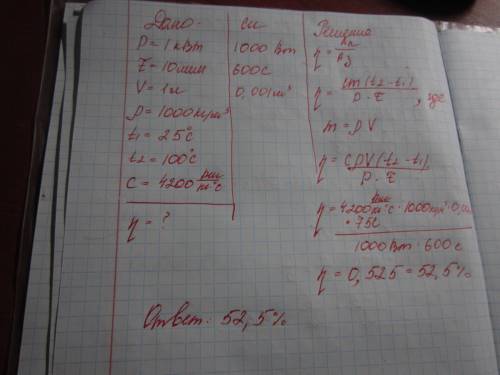 Дано:
P = 1 кВт
τ = 10 мин
V = 1 л
ρ = 1000 кг/м³
t₁ = 25°С
t₂ = 100°С
c = 4200 Дж/кг°С
η = ?
СИ
1000 Вт
600 с
0,001 м³
Решение
η = Aп/Aз
η = cm(t₂ - t₁)/P · τ, где
m = ρV
η = cρV(t₂ - t₁)/P · τ
η = 4200 Дж/кг°С · 1000 кг/м³ · 0,001
· 75С
1000 Вт · 600 с
η = 0,525 = 52,5%
Ответ: 52,5%